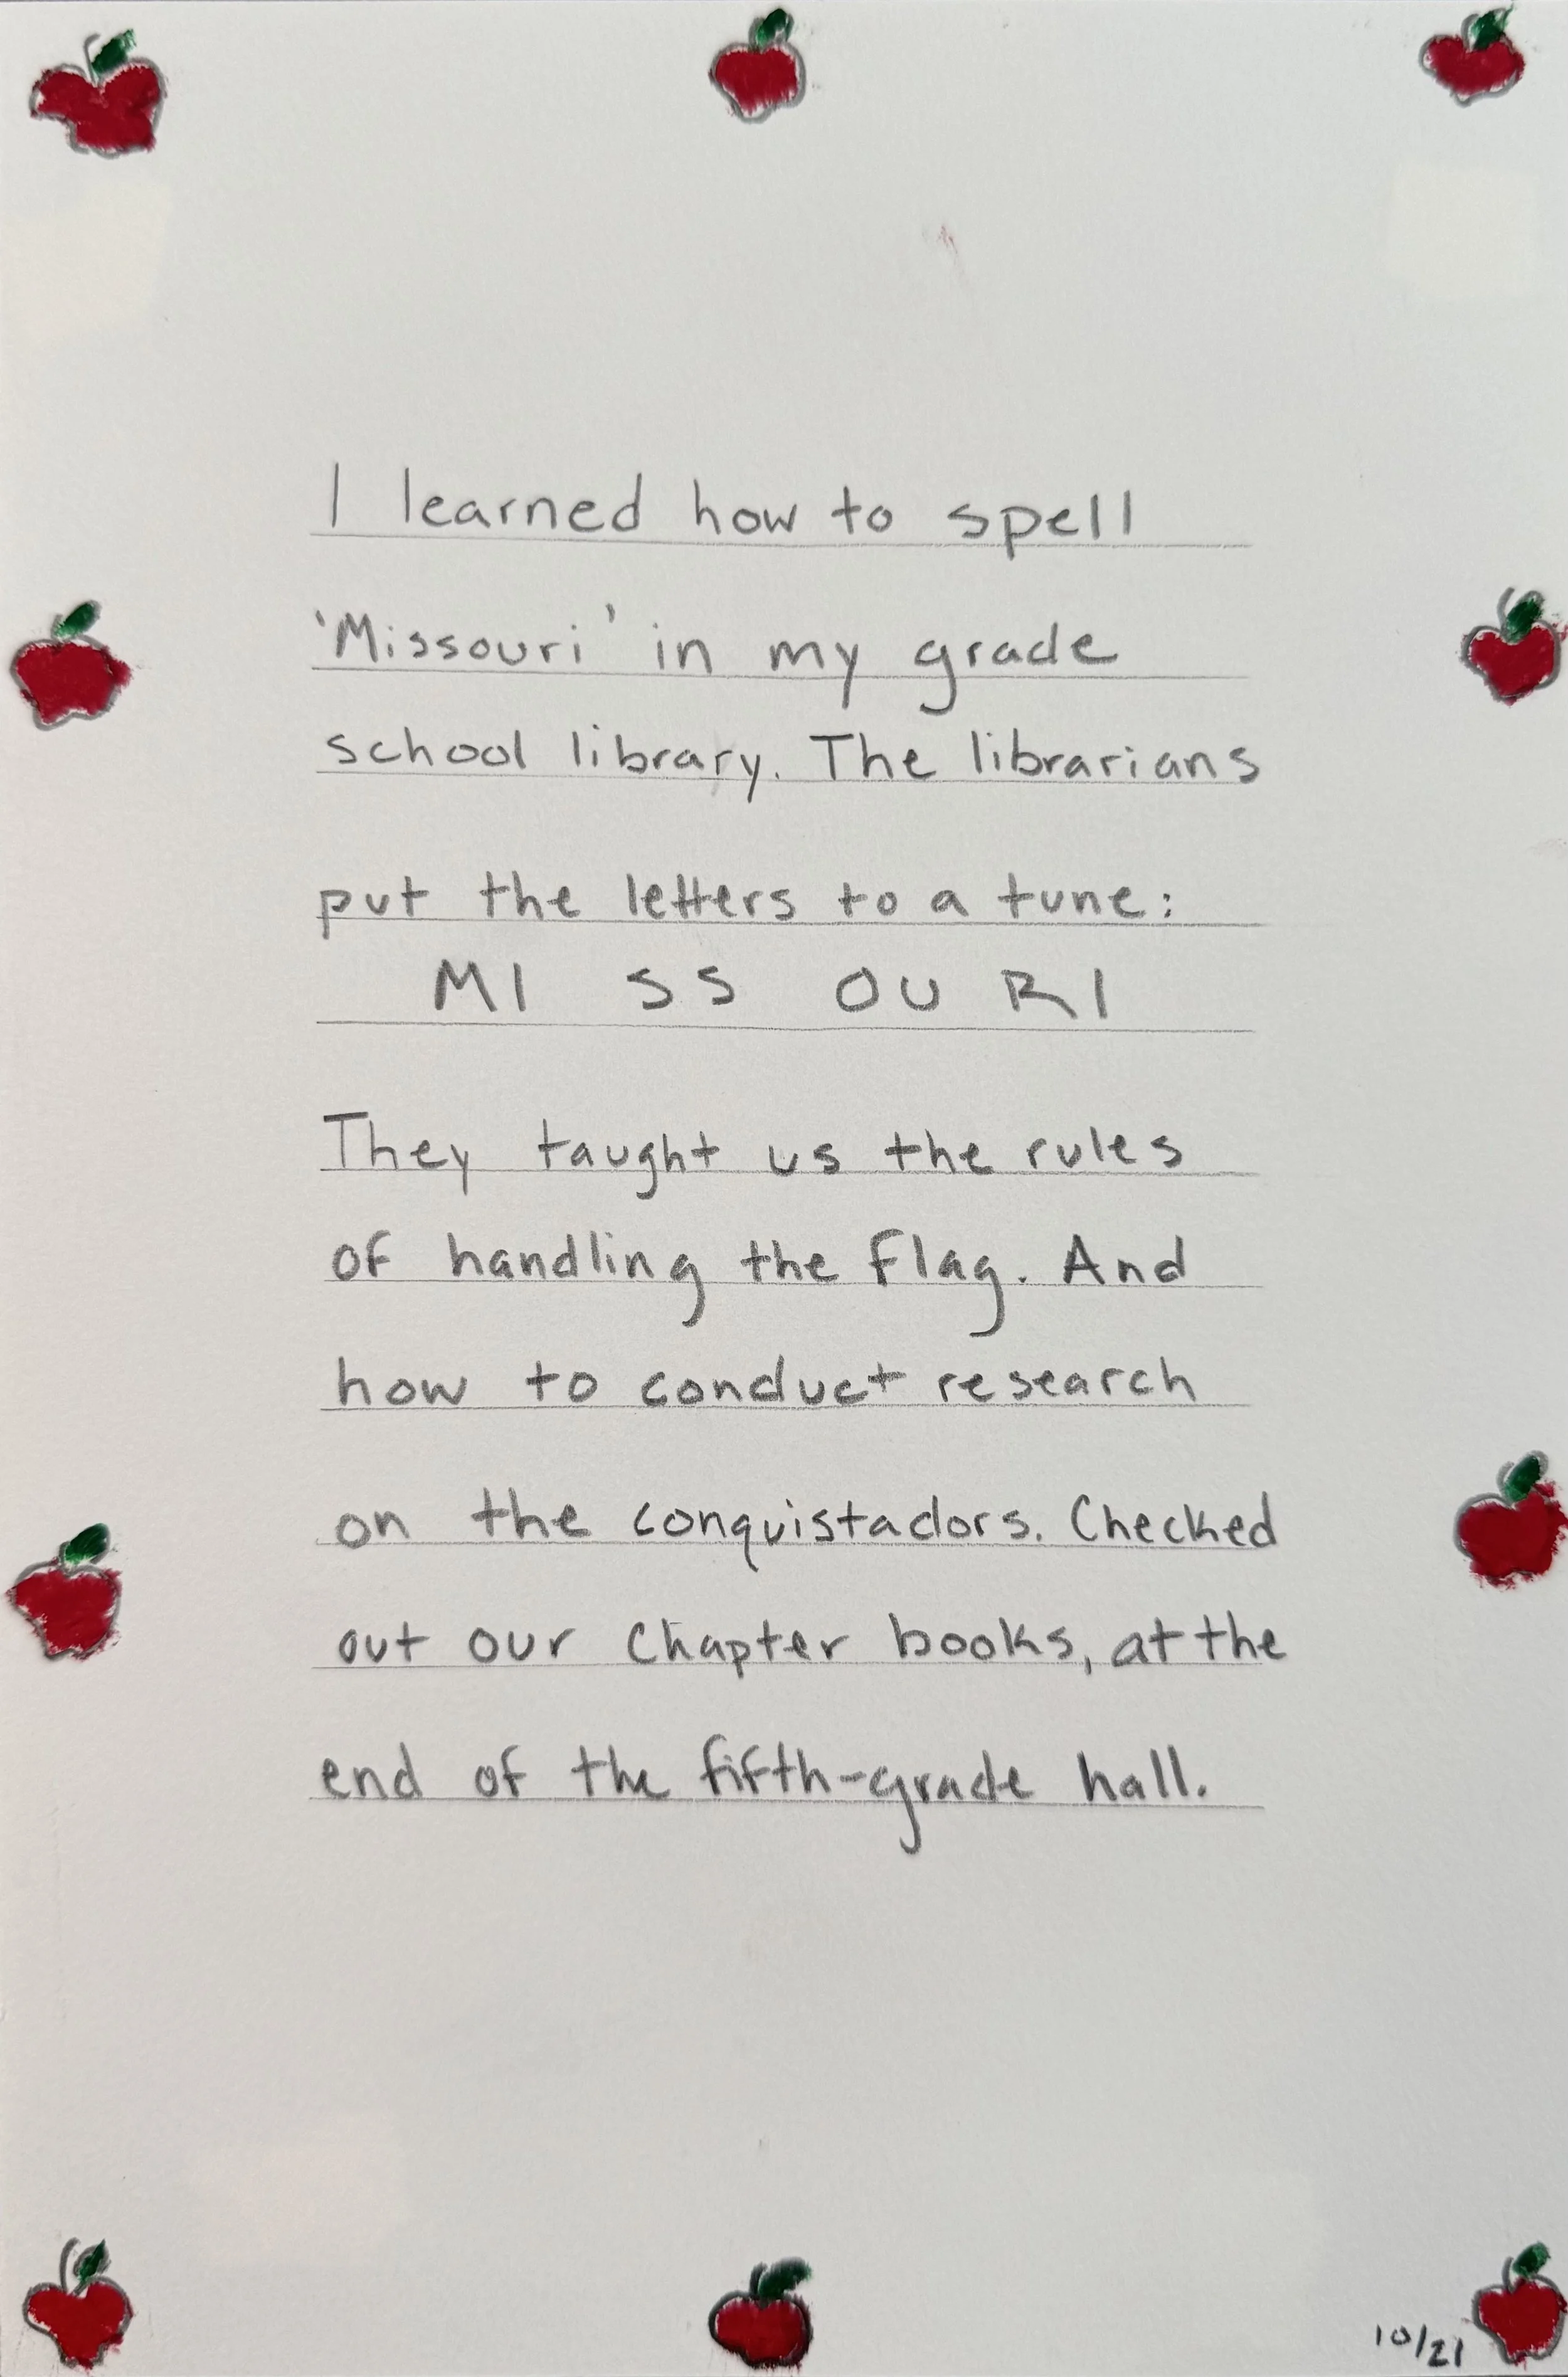 I learned how to spell
'Missouri' in my grade
school library. The librarians
put the letters to a tune:
MI SS OU RI
They taught us the rules
of handling the flag. And
how to conduct research
on the conquistadors. Checked
out our chapter books, at the
end of the fifth-grade hall.
10/21